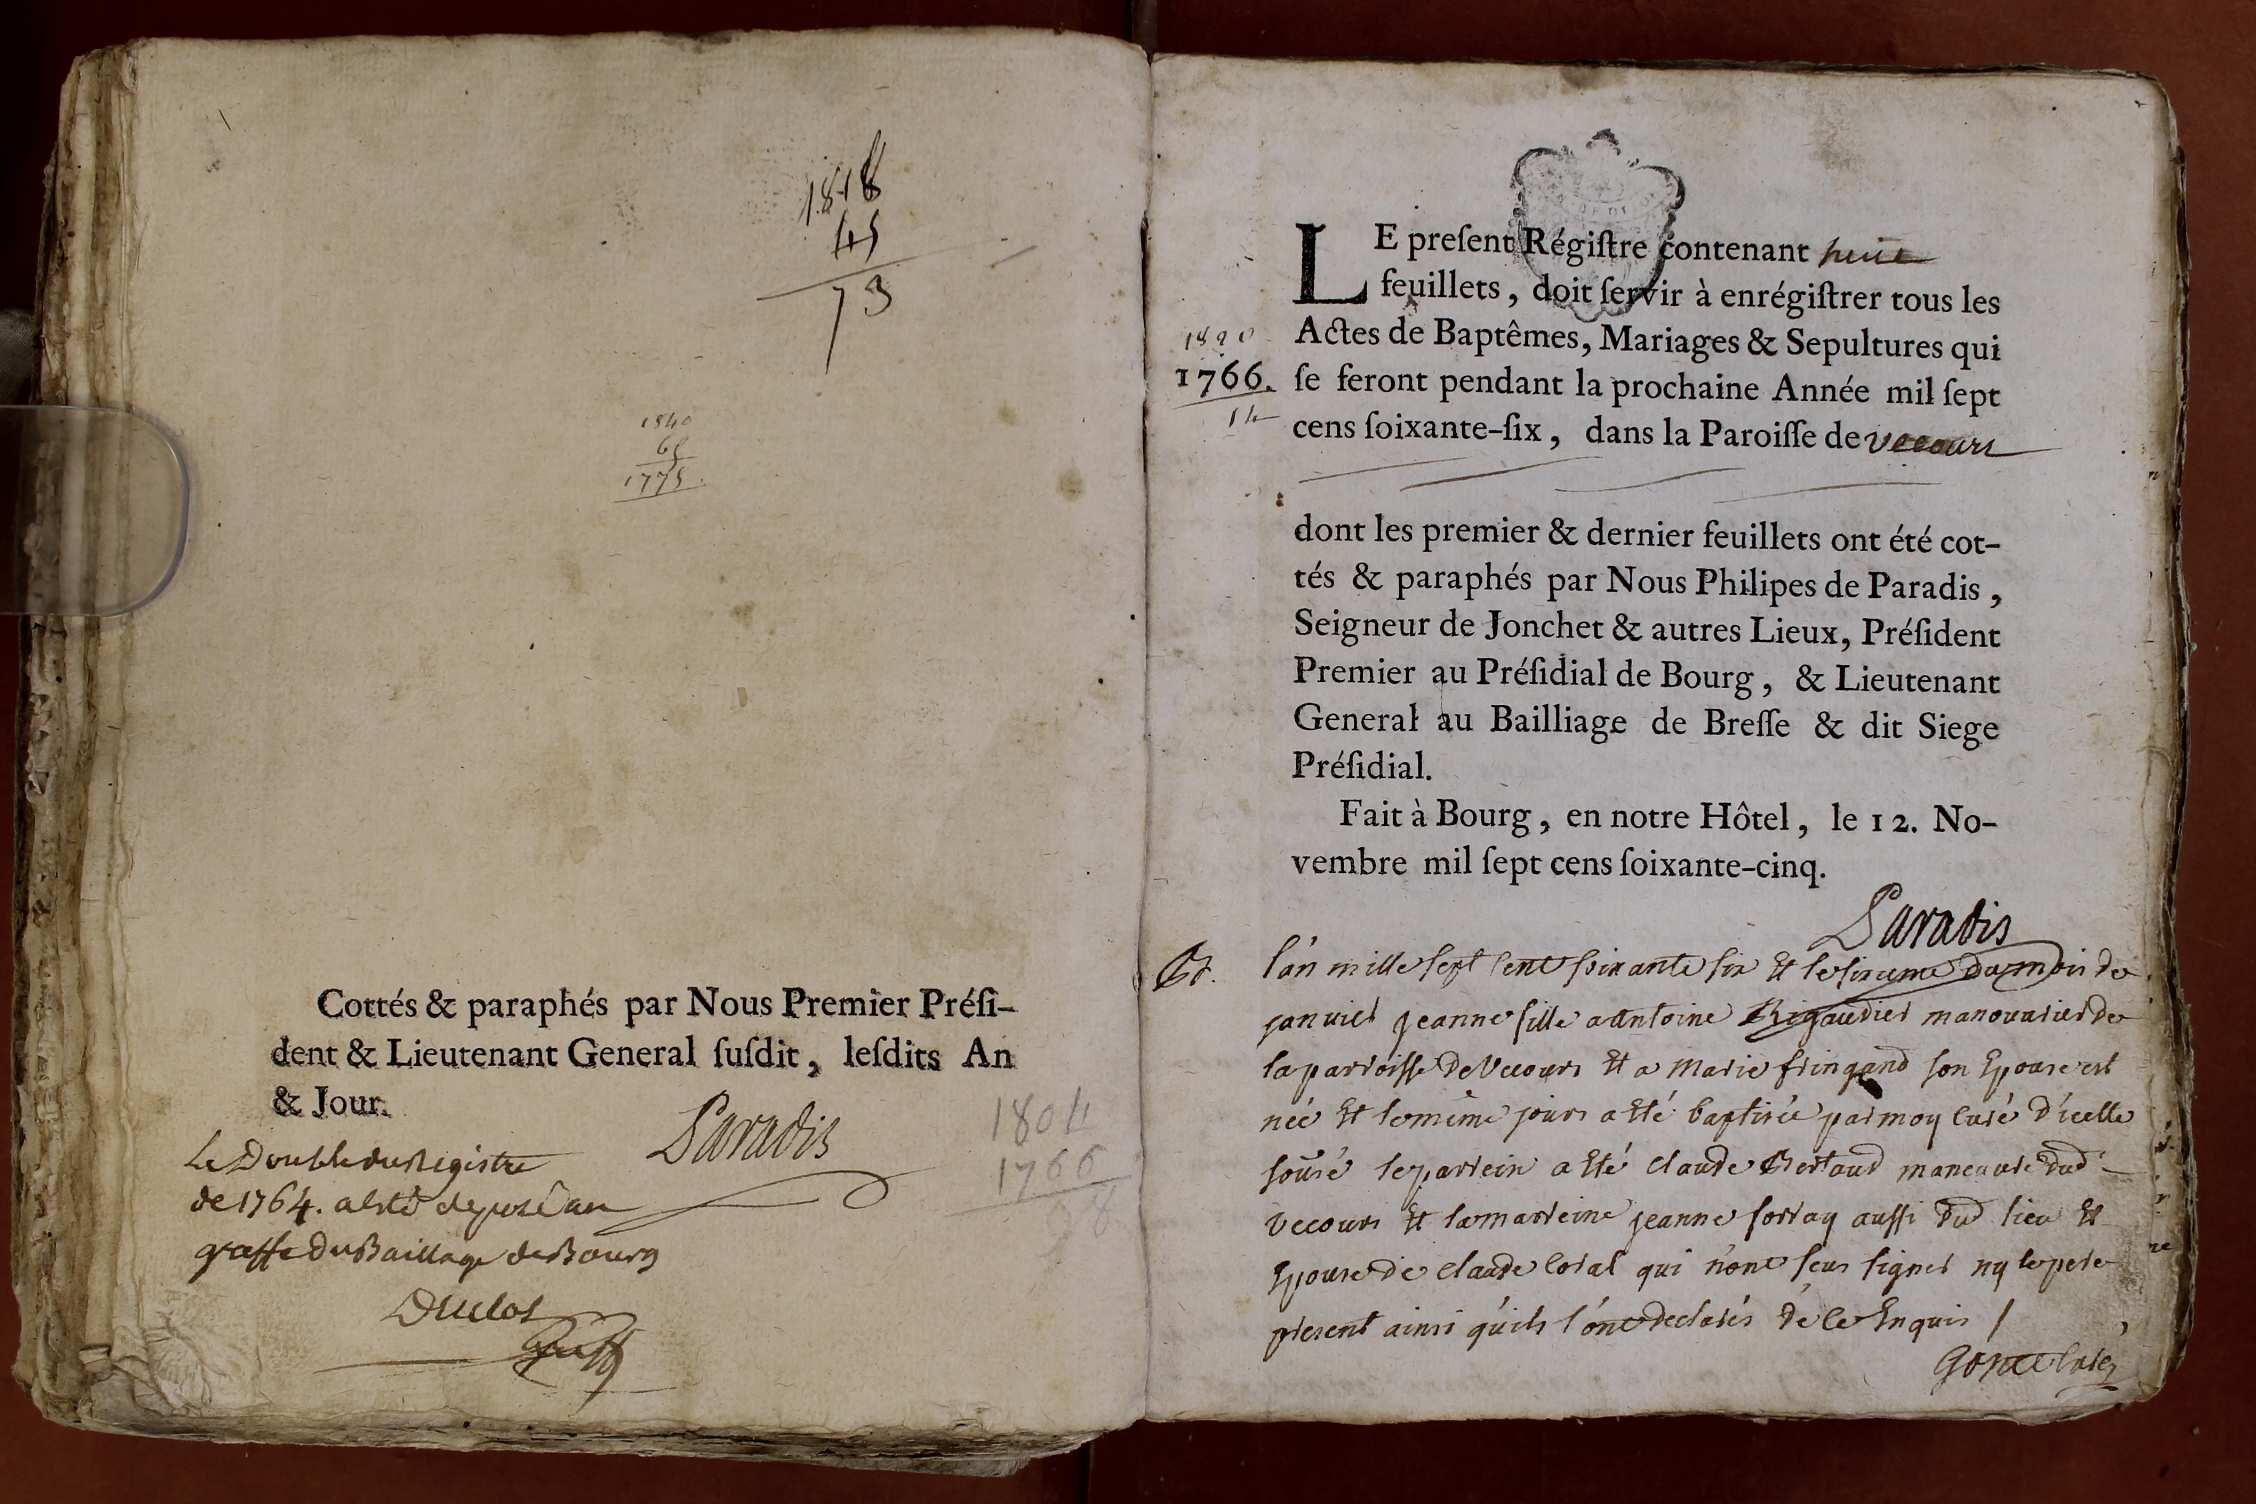 1818
45
73
1840
65
1775.
Cottés & paraphés par Nous Premier Préſi-
dent & Lieutenant General ſuſdit, leſdits An
& Jour.
Paradis
Le Double du Registre
de 1764. a esté deposé au
greffe du Bailliage de Bourg
Duclos
Greff
1804
1766
38
LE preſent Régiſtre contenant huit
feuillets, doit ſervir à enrégiſtrer tous les
Actes de Baptêmes, Mariages & Sepultures qui
1820
1766. ſe feront pendant la prochaine Année mil ſept
14
cens ſoixante-ſix, dans la Paroiſſe de Vecours
dont les premier & dernier feuillets ont été cot-
tés & paraphés par Nous Philipes de Paradis,
Seigneur de Jonchet & autres Lieux, Préſident
Premier au Préſidial de Bourg, & Lieutenant
General au Bailliage de Breſſe & dit Siege
Préſidial.
Fait à Bourg, en notre Hôtel, le 12. No-
vembre mil ſept cens ſoixante-cinq.
Paradis
l'an mille sept cent soixante six Et le sixieme du mois de
janvier jeanne fille a antoine Rigaudier manouvrier de
la parroisse de Vecours Et a Marie fringand son Epouse est
née Et le même jours a Eté baptisée par moy curé d'icelle
sousé le parrein a Eté claude Bertaud manouvre dud
Vecours Et la marreine jeanne forray aussi dud lieu Et
Epouse de claude Coral qui n'ont seus signer ny le pere
present ainsi qu'ils l'ont declarés de ce Enquis /